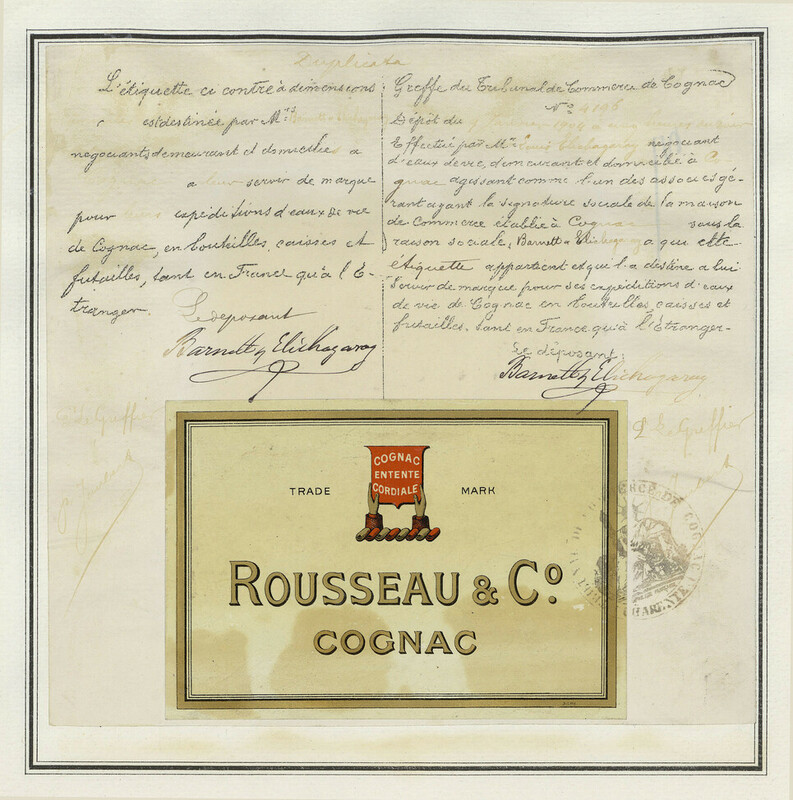 Duplicata
L'étiquette ci contre à dimensions
est destinée par Mrs
negociants demeurant et domiciliés a
a leur servir de marque
pour expéditions d'eaux de vie
de Cognac, en bouteilles, caisses et
futailles, tant en France qu'à l'E-
tranger.
Le deposant
Barnett & Elichagaray
Greffe du Tribunal de Commerce de Cognac
No 4196
Dépôt du
Effectué par Mr Louis Elichagaray négociant
d'eaux de vie, demeurant et domicilié à Co
gnac agissant comme l'un des associés gé-
rant ayant la signature sociale de la maison
de Commerce établie à Cognac sous la
raison sociale, Barnett & Elichagaray a qui cette
étiquette appartient et qui l'a destine a lui
servir de marque pour ses expéditions d'eaux
de vie de Cognac en bouteilles, caisses et
futailles, tant en France qu'à l'Etranger-
Le déposant:
Barnett & Elichagaray
Le Greffier
Le Greffier
COGNAC
ENTENTE
CORDIALE
TRADE MARK
ROUSSEAU & Co.
COGNAC
COMMERCE DE COGNAC
CHARENTE